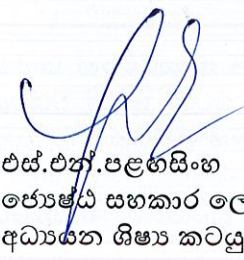 එස්.එන්.පළඟසිංහ
ජ්‍යෙෂ්ඨ සහකාර ලේ
අධ්‍යයන ශිෂ්‍ය කටයු